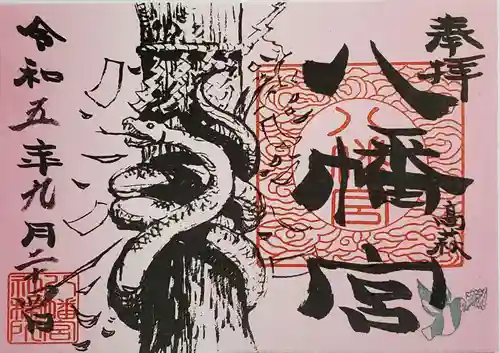 奉拝
八幡宮
高萩
八幡宮
令和五年九月二十四日